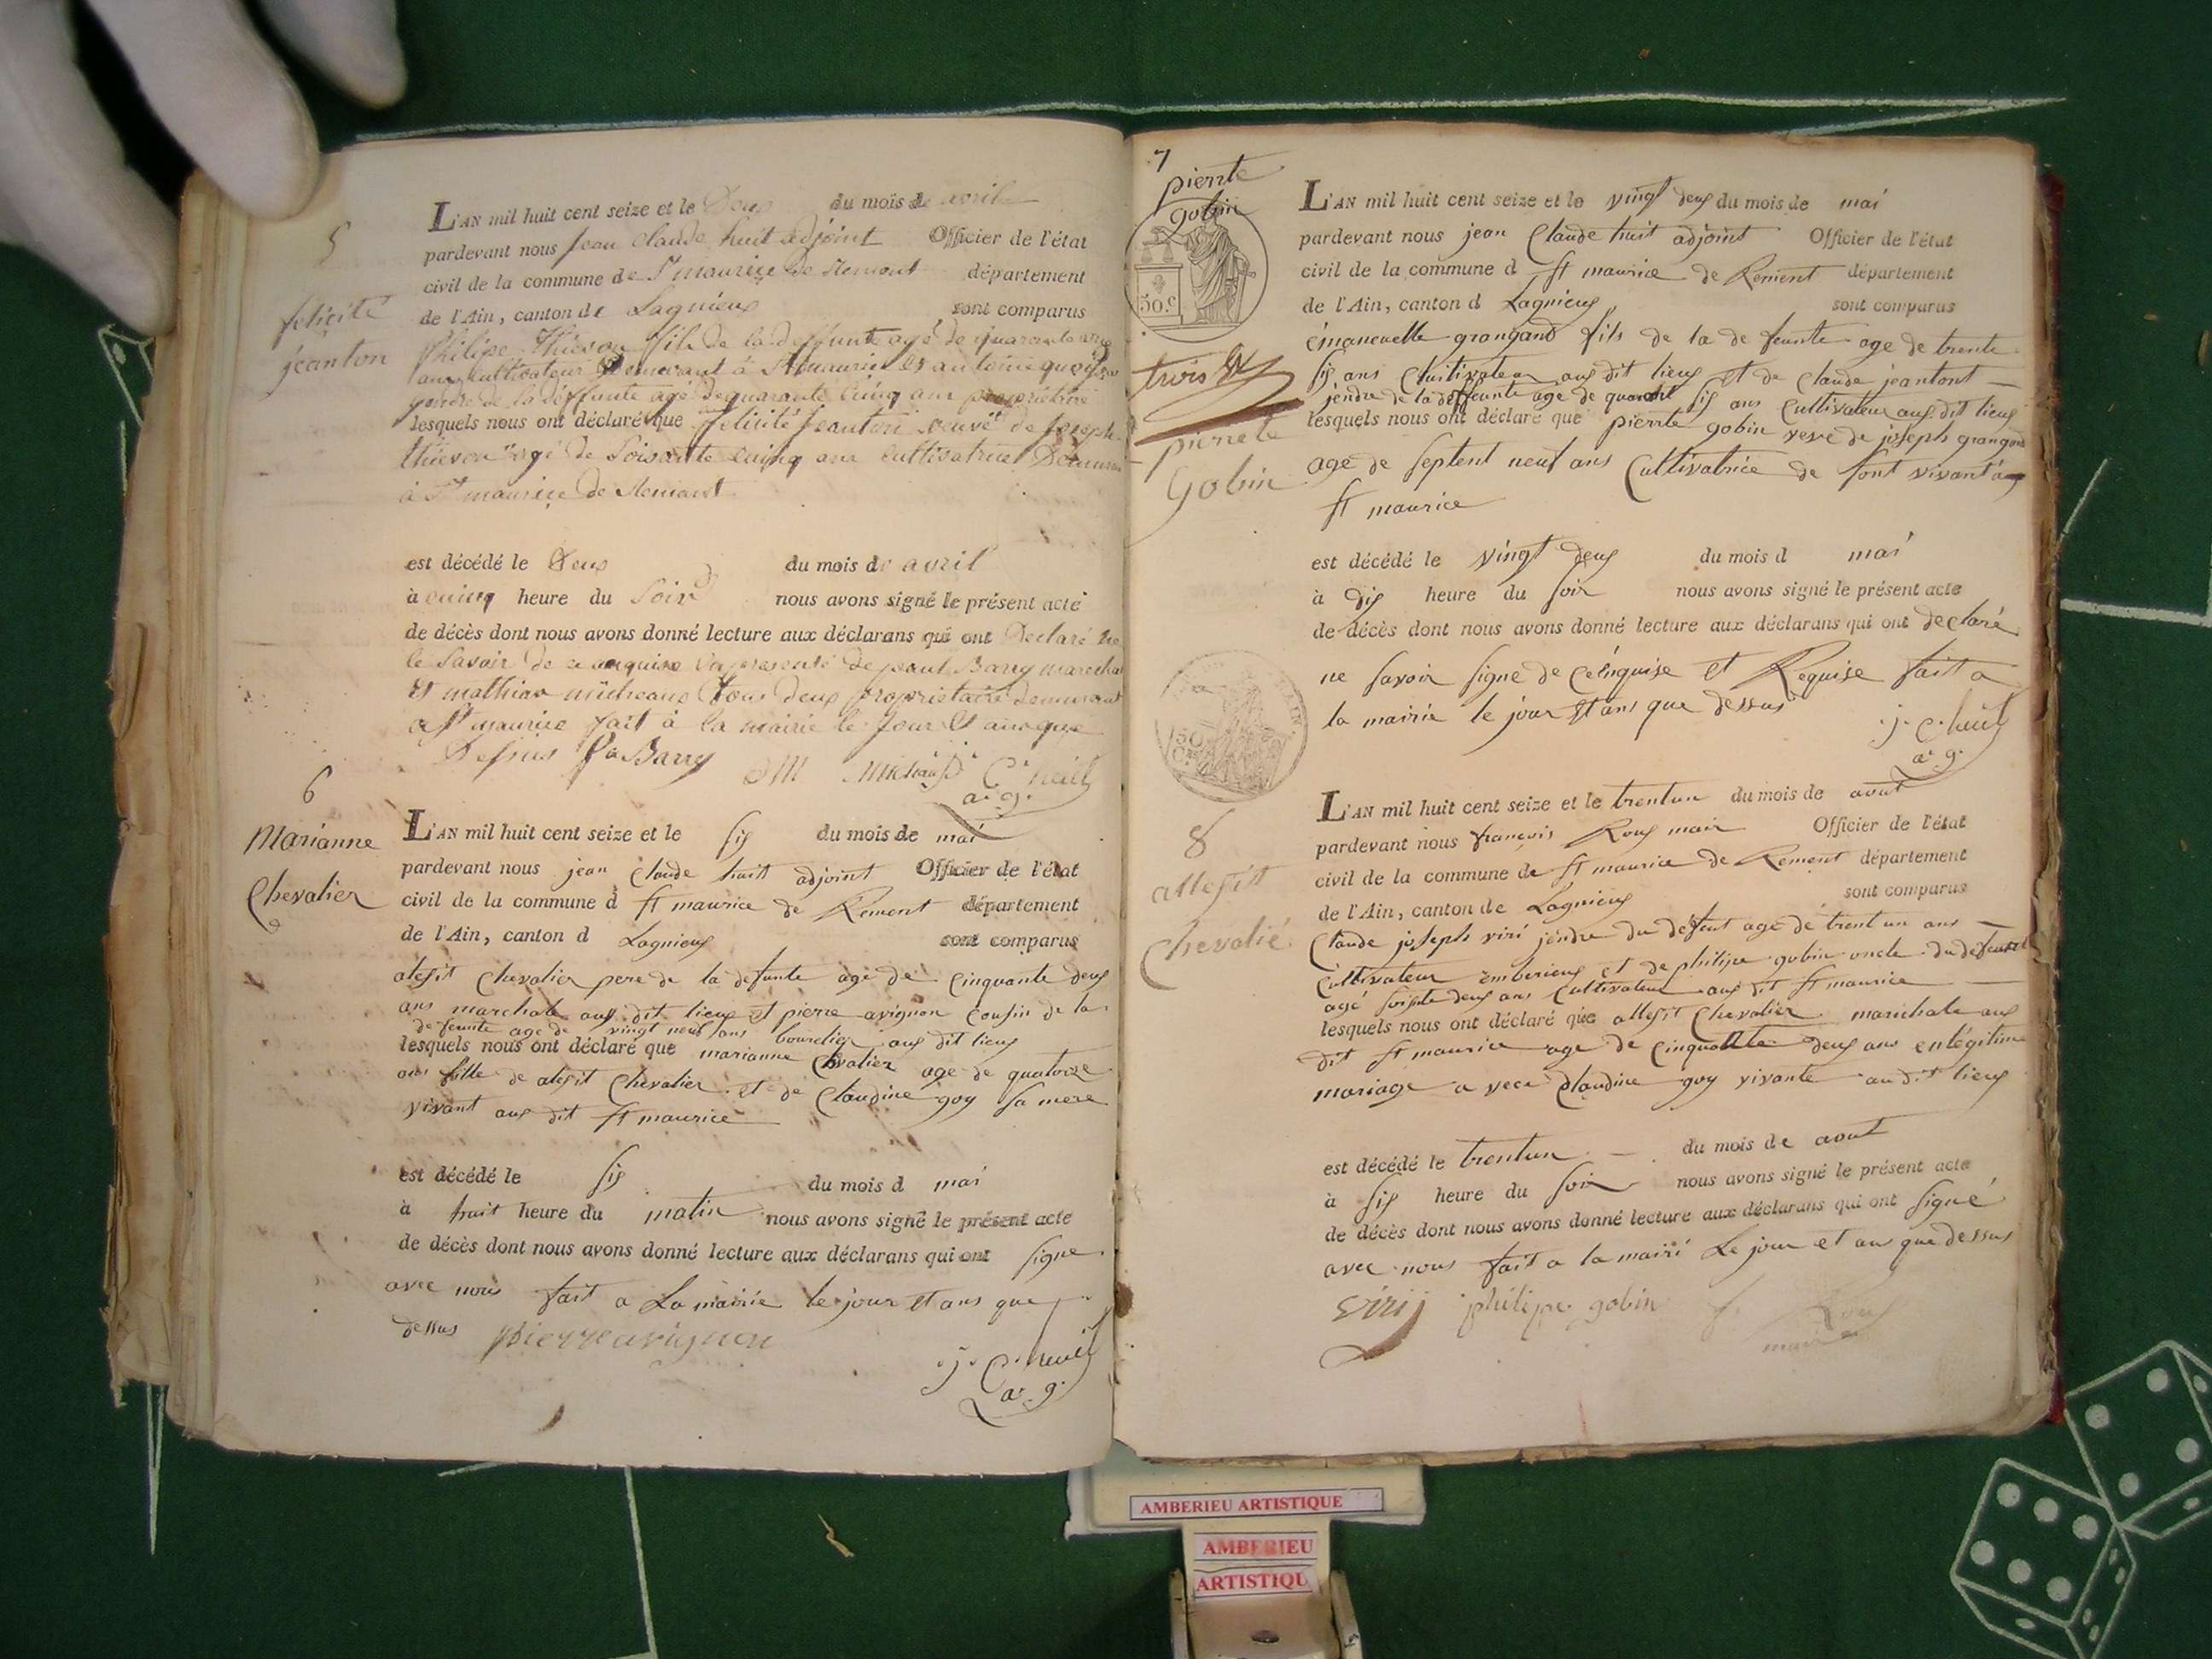 5
felicité
jeanton
L'AN mil huit cent seize et le Deux du mois de avril
pardevant nous Jean Claude huit adjoint Officier de l'état
civil de la commune de St maurice de Remont département
de l'Ain, canton de Lagnieux sont comparus
Philipe Thievon fils de la deffunte agé de quarante
ans Cultivateur Demeurant à St maurice Et antoine
gendre de la deffunte agé de quarante cuinq ans propriétaire
lesquels nous ont déclaré que felicité Jeanton veuve de Joseph
thievon agé de Soisante cuinq ans cultivatrice
à St maurice de Remont
est décédé le Deux du mois de avril
à cuinq heure du Soir nous avons signé le présent acte
de décès dont nous avons donné lecture aux déclarans qui ont Declaré ne
le Savoir de Barry marechal
Et mathias micheaux tous deux propriétaire demeurant
a St maurice fait à la mairie le Jour Et ans que
Dessus Barry Michaud
a. g.
6
Marianne
Chevalier
L'AN mil huit cent seize et le six du mois de mai
pardevant nous jean Claude huit adjoint Officier de l'état
civil de la commune d St maurice de Remont département
de l'Ain, canton d Lagnieux sont comparus
alexit Chevalier pere de la defunte age de Cinquante deux
ans marchale aux dit lieux et pierre avignon Cousin de la
defeunte age de vingt neuf ans bourelier aux dit lieux
lesquels nous ont déclaré que marianne Chevalier age de quatorze
ans fille de alexit Chevalier et de Claudine goy sa mere
vivant aux dit St maurice
est décédé le six du mois d mai
à huit heure du matin nous avons signé le présent acte
de décès dont nous avons donné lecture aux déclarans qui ont signe
avec nous fait a La mairie le jour et ans que
dessus pierre avignon
j. C. huit
a. g.
7
pierrete
gobin
50.c
trois
pierrete
Gobin
L'AN mil huit cent seize et le vingt deux du mois de mai
pardevant nous jean Claude huit adjoint Officier de l'état
civil de la commune d St maurice de Remont département
de l'Ain, canton d Lagnieux sont comparus
émanuelle grangand fils de la defeunte age de trente
six ans Cultivateur aux dit lieux et de Claude jeantont
jendre de la deffeunte age de quarant six ans Cultivateur aux dit lieux
lesquels nous ont déclaré que pierrete gobin veve de joseph grangand
age de septent neuf ans Cultivatrice de sont vivant a
St maurice
est décédé le vingt deux du mois d mai
à dix heure du soir nous avons signé le présent acte
de décès dont nous avons donné lecture aux déclarans qui ont declaré
ne savoir signe de Ce inquise et Requise fait a
la mairie le jour et ans que dessus
j. C. huit
a. g.
8
allexit
Chevalié
L'AN mil huit cent seize et le trentun du mois de aout
pardevant nous françois Roux mair Officier de l'état
civil de la commune de St maurice de Remont département
de l'Ain, canton de Lagnieux sont comparus
Claude joseph viri jendre du defeut age de trent un ans
Cultivateur emberieux et de philipe gobin oncle du defeunt
agé soisente deux ans Cultivateur aux dit St maurice
lesquels nous ont déclaré que allexit Chevalier marichale aux
dit St maurice age de Cinquante deux ans en légitime
mariage a vece Claudine goy vivante audit lieux
est décédé le trentun du mois de aout
à six heure du soir nous avons signé le présent acte
de décès dont nous avons donné lecture aux déclarans qui ont signé
avec nous fait a la mairi Le jour et ans que dessus
virij philipe gobin f. Roux
mair
AMBERIEU ARTISTIQUE
AMBERIEU
ARTISTIQU